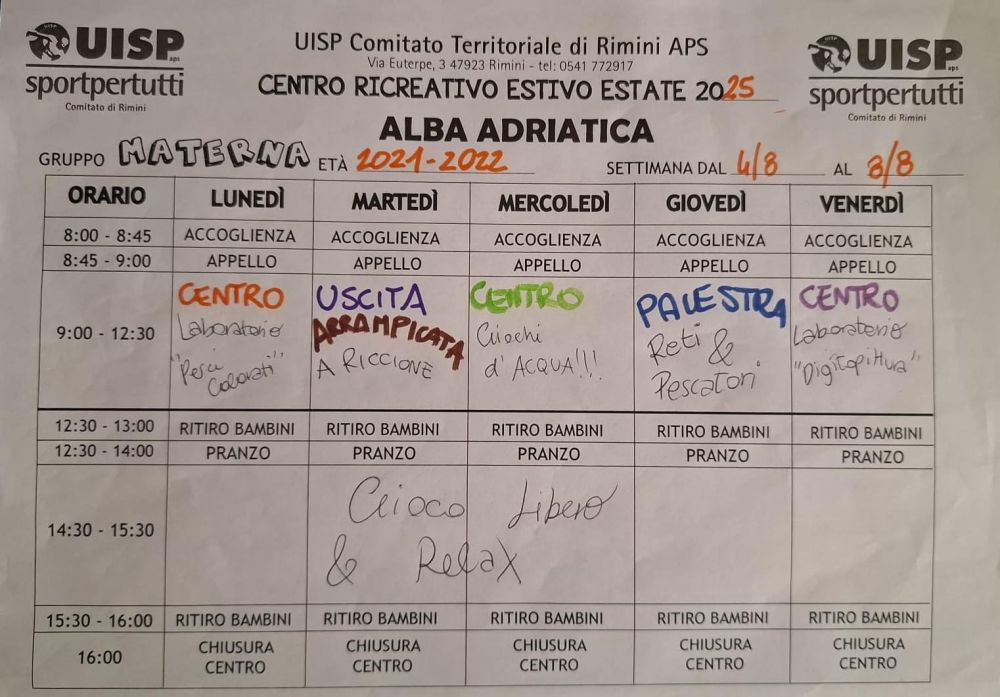 UISP aps
sportpertutti
Comitato di Rimini
UISP Comitato Territoriale di Rimini APS
Via Euterpe, 3 47923 Rimini - tel: 0541 772917
CENTRO RICREATIVO ESTIVO ESTATE 2025
UISP aps
sportpertutti
Comitato di Rimini
ALBA ADRIATICA
GRUPPO MATERNA ETÀ 2021-2022 SETTIMANA DAL 4/8 AL 8/8
ORARIO LUNEDÌ MARTEDÌ MERCOLEDÌ GIOVEDÌ VENERDÌ
8:00 - 8:45 ACCOGLIENZA ACCOGLIENZA ACCOGLIENZA ACCOGLIENZA ACCOGLIENZA
8:45 - 9:00 APPELLO APPELLO APPELLO APPELLO APPELLO
9:00 - 12:30
CENTRO
Laboratorio
"Pesci
Colorati"
USCITA
ARRAMPICATA
A RICCIONE
CENTRO
Giochi
d'ACQUA!!!
PALESTRA
Reti &
Pescatori
CENTRO
Laboratorio
"Digitopittura"
12:30 - 13:00 RITIRO BAMBINI RITIRO BAMBINI RITIRO BAMBINI RITIRO BAMBINI RITIRO BAMBINI
12:30 - 14:00 PRANZO PRANZO PRANZO PRANZO PRANZO
14:30 - 15:30
Gioco Libero
& Relax
15:30 - 16:00 RITIRO BAMBINI RITIRO BAMBINI RITIRO BAMBINI RITIRO BAMBINI RITIRO BAMBINI
16:00
CHIUSURA CHIUSURA CHIUSURA CHIUSURA CHIUSURA
CENTRO CENTRO CENTRO CENTRO CENTRO